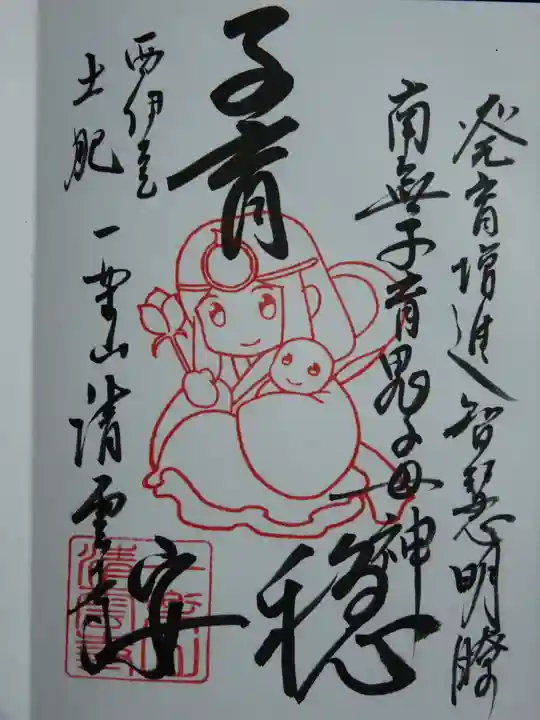 発育増進智慧明瞭
南無子育鬼子母神
子育
安穏
西伊豆
土肥
一聖山清雲寺